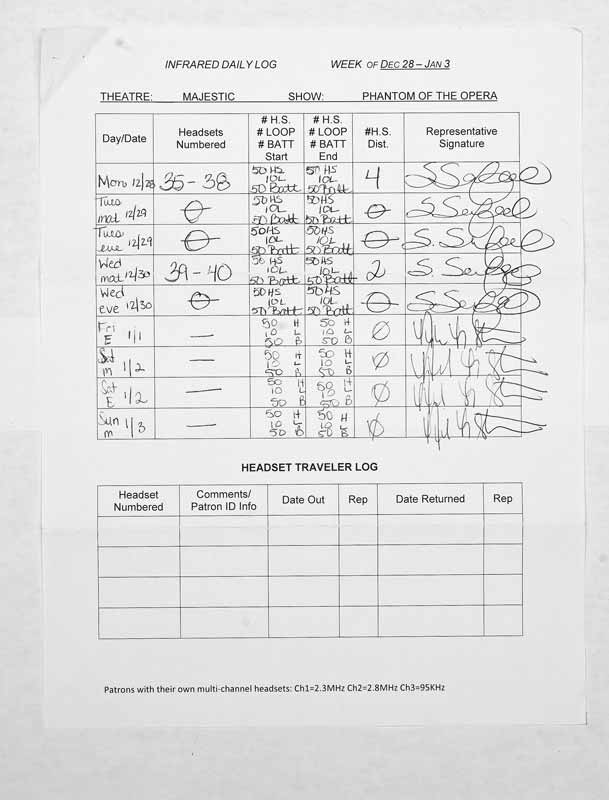 INFRARED DAILY LOG WEEK OF DEC 28 – JAN 3
THEATRE: MAJESTIC SHOW: PHANTOM OF THE OPERA
Day/Date Headsets Numbered # H.S. # LOOP # BATT Start # H.S. # LOOP # BATT End #H.S. Dist. Representative Signature
Mon 12/28 35 - 38 50 HS 10L 50 Batt 50 HS 10L 50 Batt 4
Tues mat 12/29 0 50 HS 10L 50 Batt 50 HS 10L 50 Batt 0
Tues eve 12/29 0 50 HS 10L 50 Batt 50 HS 10L 50 Batt 0
Wed mat 12/30 39 - 40 50 HS 10L 50 Batt 50 HS 10L 50 Batt 2
Wed eve 12/30 0 50 HS 10L 50 Batt 50 HS 10L 50 Batt 0
Fri E 1/1 — 50 H 10 L 50 B 50 H 10 L 50 B 0
Sat m 1/2 — 50 H 10 L 50 B 50 H 10 L 50 B 0
Sat E 1/2 — 50 H 10 L 50 B 50 H 10 L 50 B 0
Sun m 1/3 — 50 H 10 L 50 B 50 H 10 L 50 B 0
HEADSET TRAVELER LOG
Headset Numbered Comments/ Patron ID Info Date Out Rep Date Returned Rep
Patrons with their own multi-channel headsets: Ch1=2.3MHz Ch2=2.8MHz Ch3=95KHz